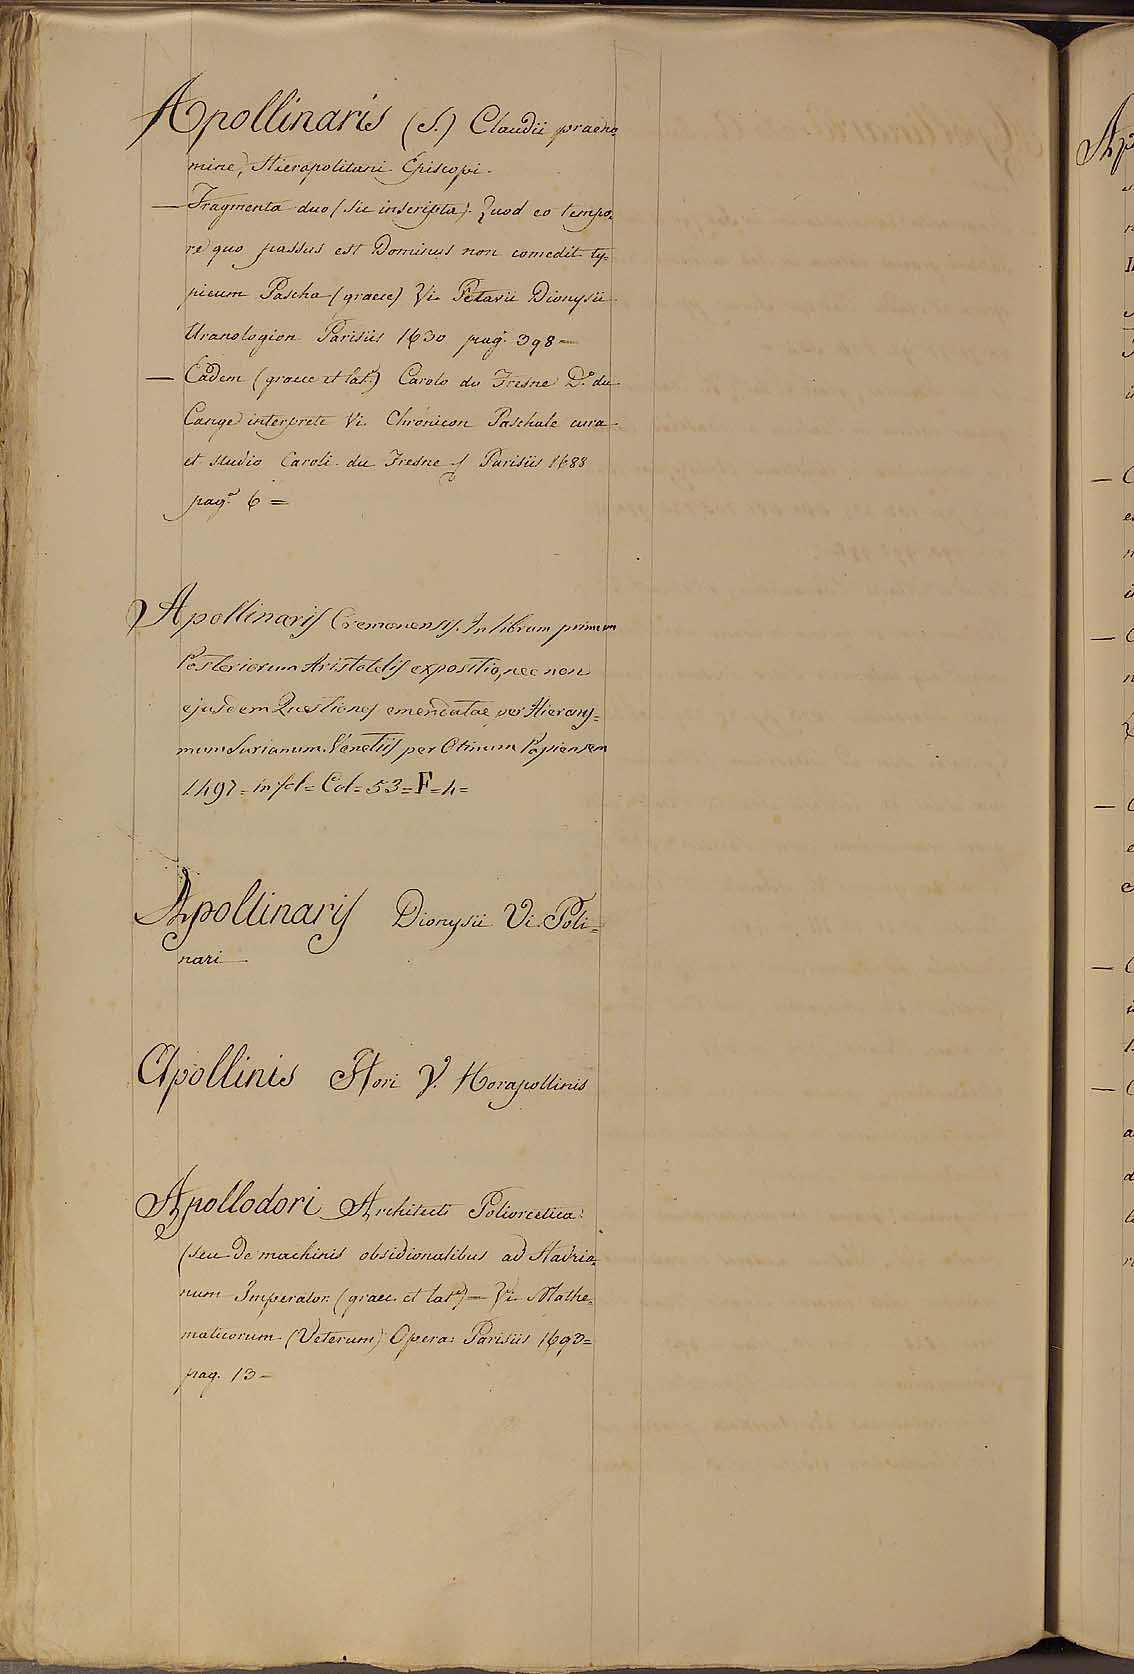 Apollinaris (S.) Claudii praeno
mine, Hieropolitani Episcopi.
— Fragmenta duo (sic inscripta). Quod eo tempo.
re quo passus est Dominus non comedit ty=
picum Pascha (graece) Vi. Petavii Dionysii
Uranologion Parisiis 1630 pag. 398 —
— Eadem (graece et lat.) Carolo du Fresne D.º du
Cange interprete Vi. Chronicon Paschale cura
et studio Caroli du Fresne Parisiis 1688
pag.ª 6 =
Apollinaris Cremonensis. In librum primum
Posteriorum Aristotelis expositio, nec non
ejusdem Questiones emendatae per Hierony=
mum Surianum. Venetiis per Otinum Papiensem
1497 = in fol = Col = 53 = F = 4 =
Apollinaris Dionysii Vi. Poli=
nari
Apollinis Hori V. Horapollinis
Apollodori Architecti Poliorcetica
(seu De machinis obsidionalibus ad Hadria=
num Imperator. (graec. et lat.) — Vi. Mathe=
maticorum (Veterum) Opera: Parisiis 1693 =
pag. 13 —